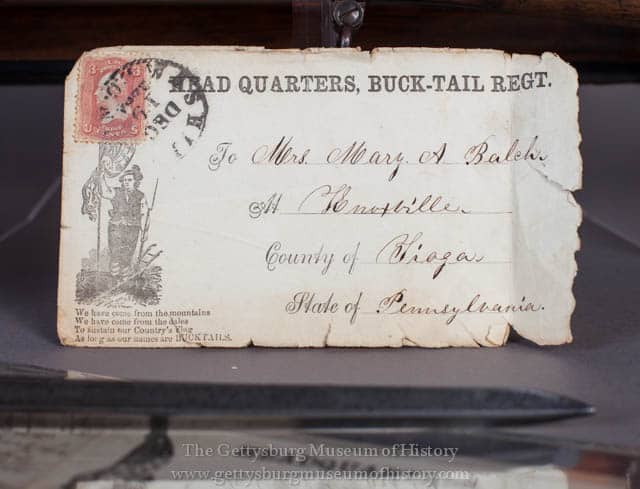 HEAD QUARTERS, BUCK-TAIL REGT.
To Mrs. Mary A Balch
At Knoxville
County of Tioga
State of Pennsylvania.
We have come from the mountains
We have come from the dales
To sustain our Country's Flag
As long as our names are BUCKTAILS.
The Gettysburg Museum of History
www.gettysburgmuseumofhistory.com